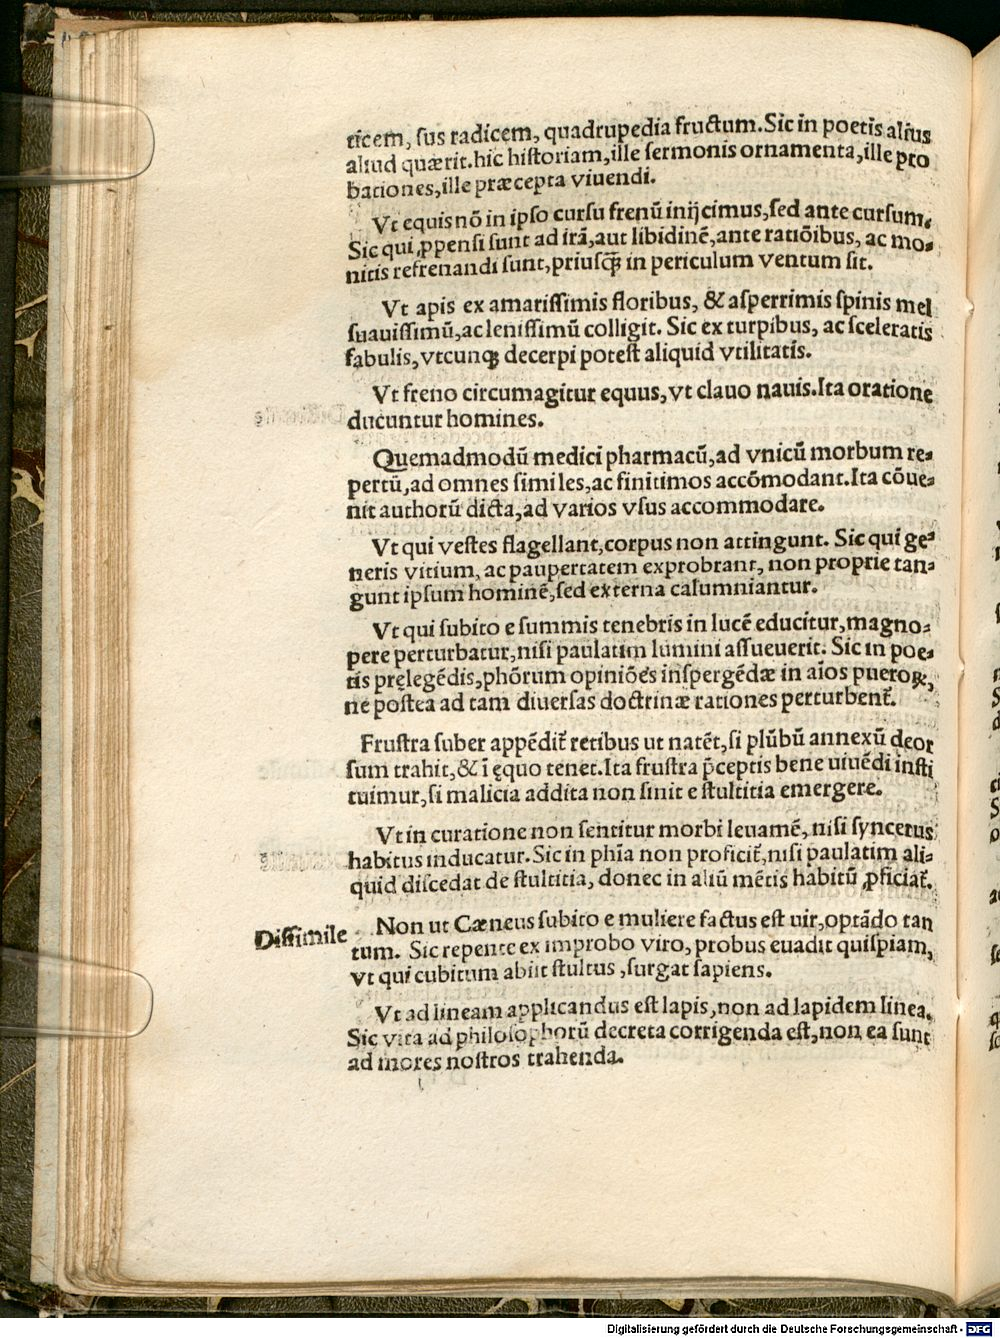 ticem, sus radicem, quadrupedia fructum. Sic in poetis alius
aliud quærit. hic historiam, ille sermonis ornamenta, ille pro
bationes, ille præcepta viuendi.
Vt equis nõ in ipso cursu frenũ inijcimus, sed ante cursum.
Sic qui ꝓpensi sunt ad irã, aut libidinẽ, ante ratiõibus, ac mo-
nitis refrenandi sunt, priusq̃ in periculum ventum sit.
Vt apis ex amarissimis floribus, & asperrimis spinis mel
suauissimũ, ac lenissimũ colligit. Sic ex turpibus, ac sceleratis
fabulis, vtcunqꝫ decerpi potest aliquid vtilitatis.
Vt freno circumagitur equus, vt clauo nauis. Ita oratione
ducuntur homines.
Quemadmodũ medici pharmacũ, ad vnicũ morbum re-
pertũ, ad omnes similes, ac finitimos accõmodant. Ita cõue-
nit authorũ dicta, ad varios vsus accommodare.
Vt qui vestes flagellant, corpus non attingunt. Sic qui ge-
neris vitium, ac paupertatem exprobrant, non proprie tan-
gunt ipsum hominẽ, sed externa calumniantur.
Vt qui subito e summis tenebris in lucẽ educitur, magno-
pere perturbatur, nisi paulatim lumini assueuerit. Sic in poe-
tis pręlegẽdis, phõrum opiniões inspergẽdæ in aĩos pueroꝝ,
ne postea ad tam diuersas doctrinæ rationes perturbent̃.
Frustra suber appẽdit̃ retibus ut natẽt, si plũbũ annexũ deor
sum trahit, & ĩ ęquo tenet. Ita frustra p̃ceptis bene uiuẽdi insti
tuimur, si malicia addita non sinit e stultitia emergere.
Vt in curatione non sentitur morbi leuamẽ, nisi syncerus
habitus inducatur. Sic in phĩa non proficit̃, nisi paulatim ali-
quid discedat de stultitia, donec in aliũ mẽtis habitũ ꝓficiat̃.
Dissimile
Non ut Cæneus subito e muliere factus est uir, optãdo tan
tum. Sic repente ex improbo viro, probus euadit quispiam,
vt qui cubitum abiit stultus, surgat sapiens.
Vt ad lineam applicandus est lapis, non ad lapidem linea.
Sic vita ad philosophorũ decreta corrigenda est, non ea sunt
ad mores nostros trahenda.
Digitalisierung gefördert durch die Deutsche Forschungsgemeinschaft - DFG